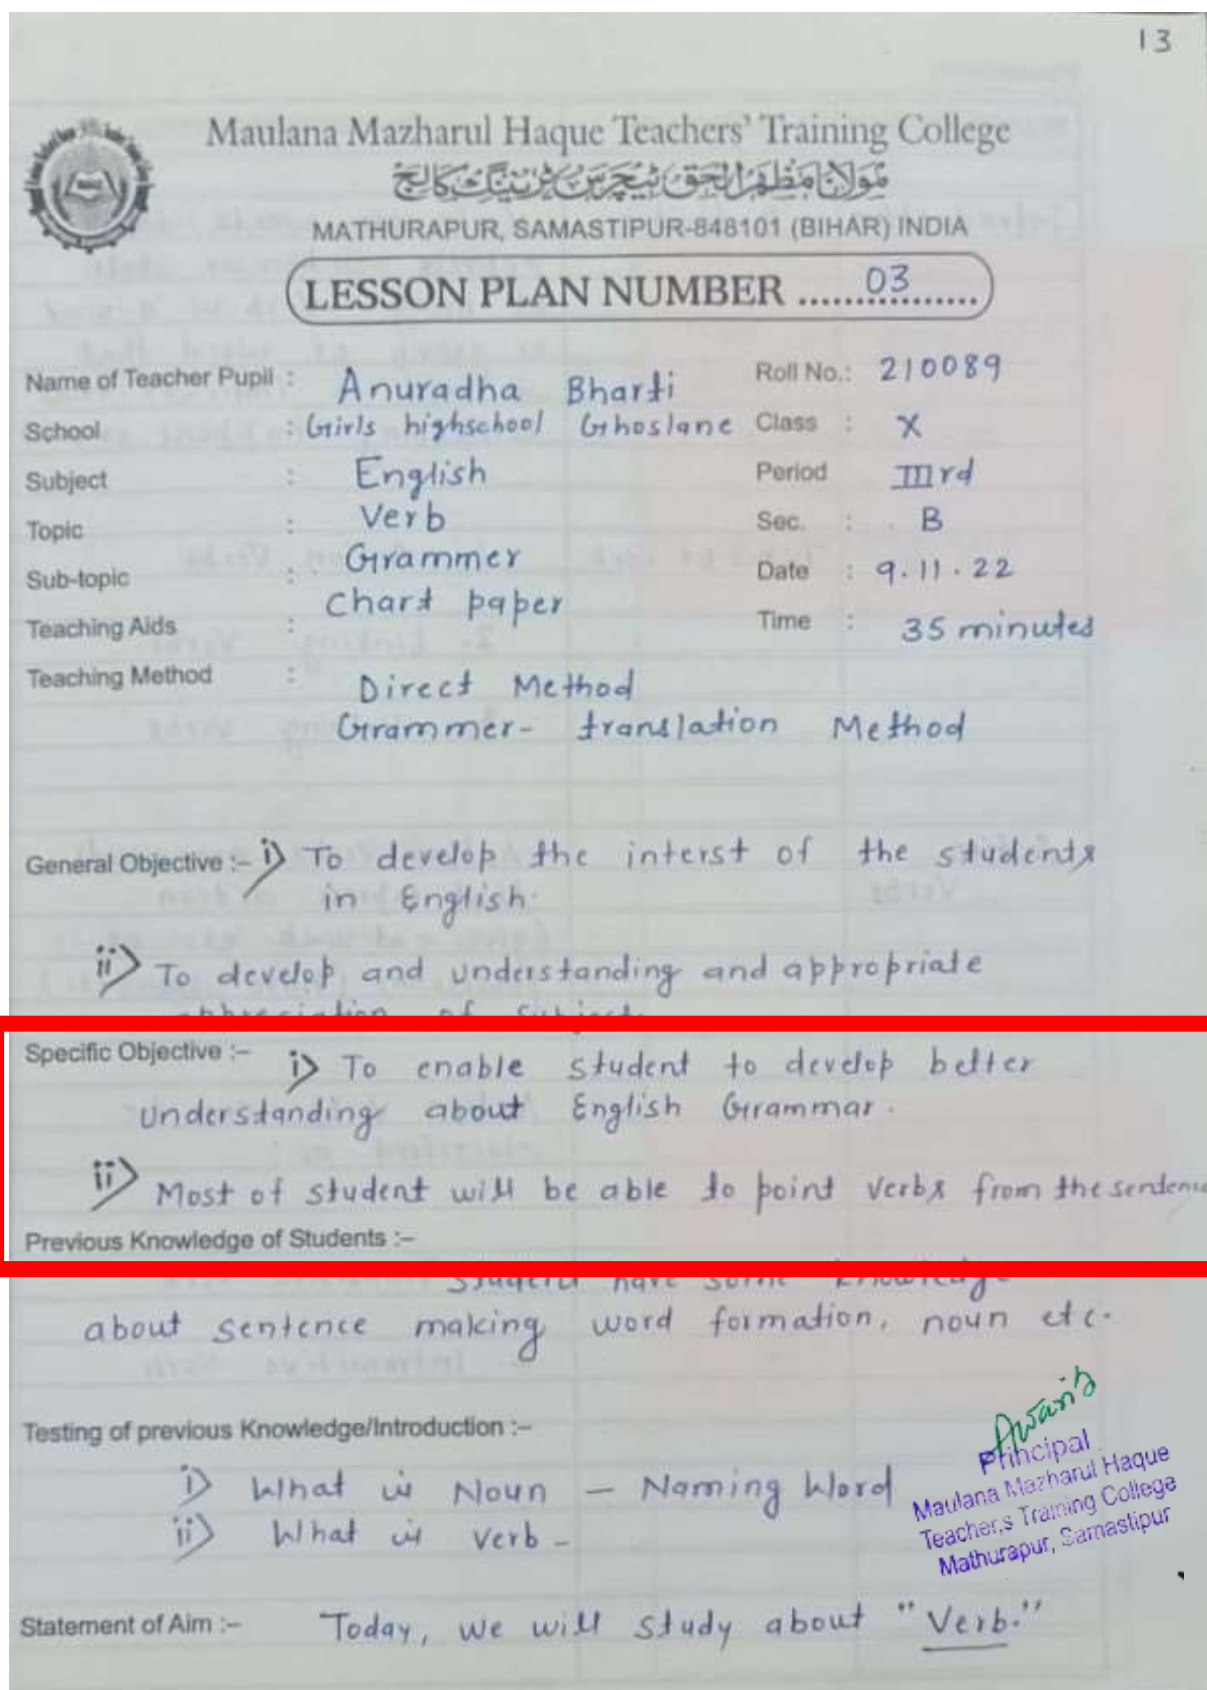 13
Maulana Mazharul Haque Teachers' Training College
مولانا مظہر الحق ٹیچرس ٹریننگ کالج
MATHURAPUR, SAMASTIPUR-848101 (BIHAR) INDIA
LESSON PLAN NUMBER ......03..........
Name of Teacher Pupil : Anuradha Bharti Roll No.: 210089
School : Girls highschool Ghoslane Class : X
Subject : English Period IIIrd
Topic : Verb Sec. : B
Sub-topic : Grammer Date : 9.11.22
Teaching Aids : Chart paper Time : 35 minutes
Teaching Method : Direct Method
Grammer- translation Method
General Objective :– i) To develop the interst of the students
in English.
ii) To develop and understanding and appropriate
appreciation of subject.
Specific Objective :– i) To enable student to develop better
Understanding about English Grammar.
ii) Most of student will be able to point verbs from the sentence
Previous Knowledge of Students :–
Student have some knowledge
about sentence making word formation, noun etc.
Testing of previous Knowledge/Introduction :–
i) What is Noun – Naming Word
ii) What is verb –
Principal
Maulana Mazharul Haque
Teacher,s Training College
Mathurapur, Samastipur
Statement of Aim :– Today, we will study about "Verb."